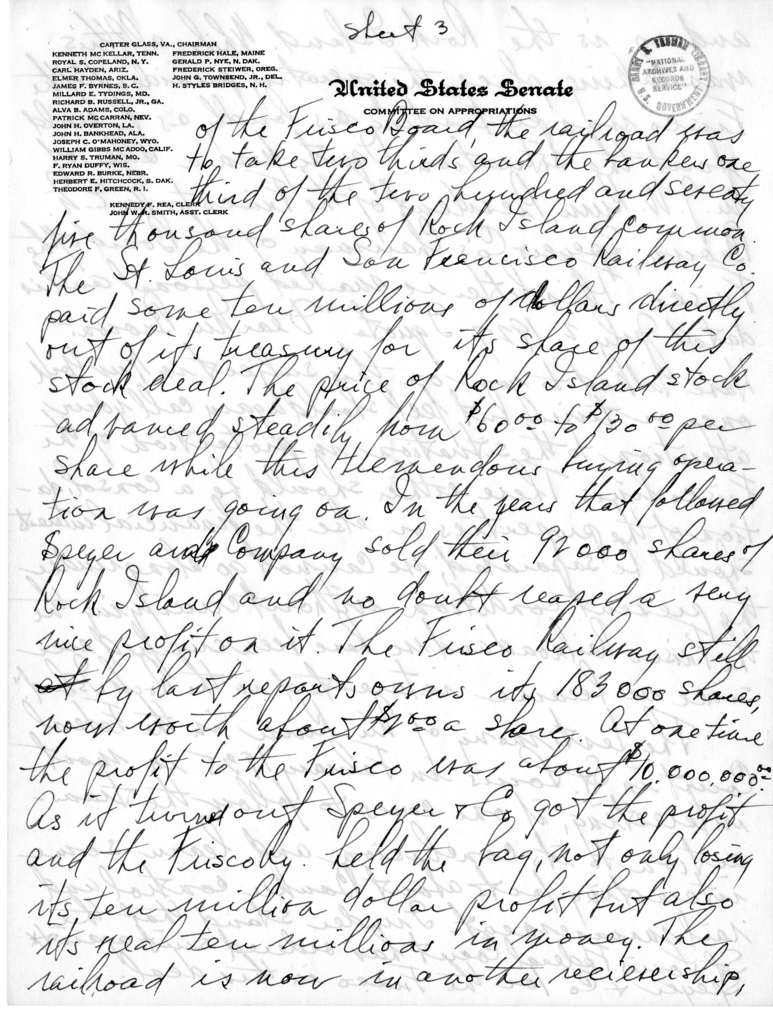 Sheet 3
CARTER GLASS, VA., CHAIRMAN
KENNETH MC KELLAR, TENN. FREDERICK HALE, MAINE
ROYAL S. COPELAND, N. Y. GERALD P. NYE, N. DAK.
CARL HAYDEN, ARIZ. FREDERICK STEIWER, OREG.
ELMER THOMAS, OKLA. JOHN G. TOWNSEND, JR., DEL.
JAMES F. BYRNES, S. C. H. STYLES BRIDGES, N. H.
MILLARD E. TYDINGS, MD.
RICHARD B. RUSSELL, JR., GA.
ALVA B. ADAMS, COLO.
PATRICK MC CARRAN, NEV.
JOHN H. OVERTON, LA.
JOHN H. BANKHEAD, ALA.
JOSEPH C. O'MAHONEY, WYO.
WILLIAM GIBBS MC ADOO, CALIF.
HARRY S. TRUMAN, MO.
F. RYAN DUFFY, WIS.
EDWARD R. BURKE, NEBR.
HERBERT E. HITCHCOCK, S. DAK.
THEODORE F. GREEN, R. I.
KENNEDY F. REA, CLERK
JOHN W. R. SMITH, ASST. CLERK
HARRY S. TRUMAN LIBRARY
"NATIONAL
ARCHIVES AND
RECORDS
SERVICE"
United States Senate
COMMITTEE ON APPROPRIATIONS
of the Frisco Board, the railroad was
to take two thirds and the bankers one
third of the two hundred and seventy
five thousand shares of Rock Island common.
The St. Louis and San Francisco Railway Co.
paid some ten millions of dollars directly
out of its treasury for its share of this
stock deal. The price of Rock Island stock
advanced steadily from $60 00 to $130 00 per
share while this tremendous buying opera-
tion was going on. In the years that followed
Speyer and Company sold their 92000 shares of
Rock Island and no doubt reaped a very
nice profit on it. The Frisco Railway still
at by last reports owns its 183000 shares,
now worth about $2 00 a share. At one time
the profit to the Frisco was about $10,000,000 00
As it turned out Speyer & Co got the profit
and the Frisco Ry. held the bag, not only losing
its ten million dollar profit but also
its real ten millions in money. The
railroad is now in another recievership,